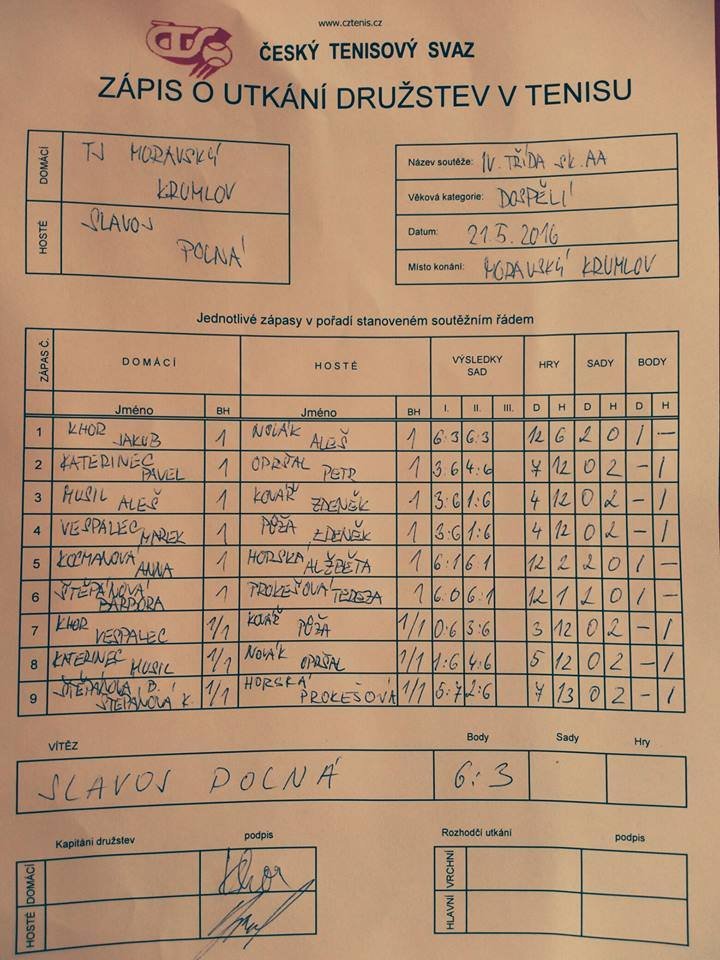 www.cztenis.cz
ČTS
ČESKÝ TENISOVÝ SVAZ
ZÁPIS O UTKÁNÍ DRUŽSTEV V TENISU
DOMÁCÍ TJ MORAVSKÝ
KRUMLOV
HOSTÉ SLAVOJ
POLNÁ
Název soutěže: IV. TŘÍDA SK. AA
Věková kategorie: DOSPĚLÍ
Datum: 21.5.2016
Místo konání: MORAVSKÝ KRUMLOV
Jednotlivé zápasy v pořadí stanoveném soutěžním řádem
ZÁPAS Č. DOMÁCÍ HOSTÉ VÝSLEDKY SAD HRY SADY BODY
Jméno BH Jméno BH I. II. III. D H D H D H
1 KHOR JAKUB 1 NOVÁK ALEŠ 1 6:3 6:3 12 6 2 0 1 –
2 KATERINEC PAVEL 1 OPRŠAL PETR 1 3:6 4:6 7 12 0 2 – 1
3 MUSIL ALEŠ 1 KOVÁŘ ZDENĚK 1 3:6 1:6 4 12 0 2 – 1
4 VESPALEC MAREK 1 PŮŽA ZDENĚK 1 3:6 1:6 4 12 0 2 – 1
5 KOCMANOVÁ ANNA 1 HORSKÁ ALŽBĚTA 1 6:1 6:1 12 2 2 0 1 –
6 ŠTĚPÁNOVÁ BARBORA 1 PROKEŠOVÁ TEREZA 1 6:0 6:1 12 1 2 0 1 –
7 KHOR VESPALEC 1/1 KOVÁŘ PŮŽA 1/1 0:6 3:6 3 12 0 2 – 1
8 KATERINEC MUSIL 1/1 NOVÁK OPRŠAL 1/1 1:6 4:6 5 12 0 2 – 1
9 ŠTĚPÁNOVÁ B. ŠTĚPÁNOVÁ K. 1/1 HORSKÁ PROKEŠOVÁ 1/1 5:7 2:6 7 13 0 2 – 1
VÍTĚZ Body Sady Hry
SLAVOJ POLNÁ 6:3
Kapitáni družstev podpis Rozhodčí utkání podpis
DOMÁCÍ Khor VRCHNÍ
HOSTÉ HLAVNÍ